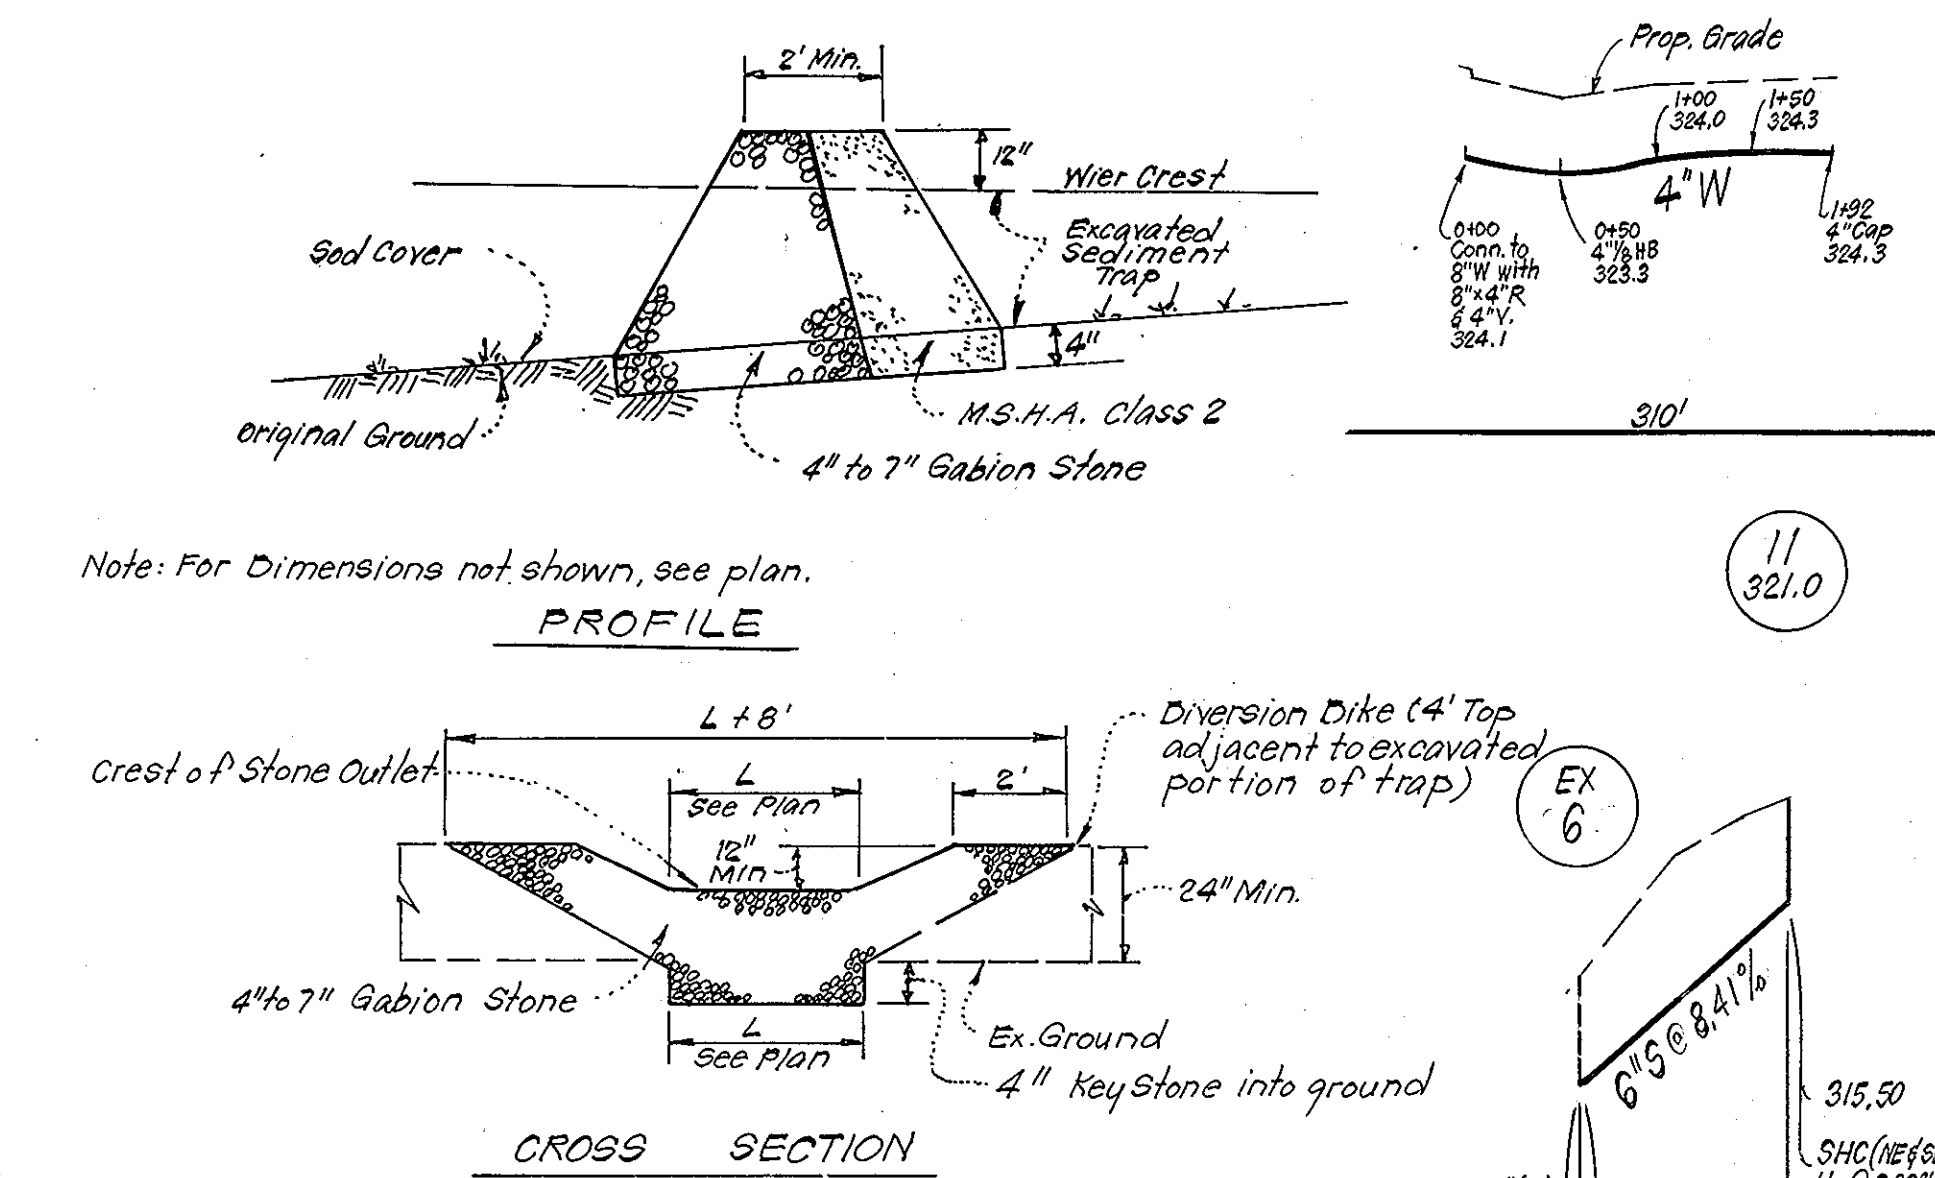 2' Min.
12"
Wier Crest
Sod Cover
Excavated
Sediment
Trap
4"
Original Ground
M.S.H.A. Class 2
4" to 7" Gabion Stone
Note: For Dimensions not shown, see plan.
PROFILE
Prop. Grade
1+00
324.0
1+50
324.3
4" W
0+00
Conn. to
8"W with
8"x4"R
& 4"V.
324.1
0+50
4"1/8 HB
323.3
1+92
4"Cap
324.3
310'
11
321.0
L + 8'
Crest of Stone Outlet
L
See Plan
2'
Diversion Dike (4' Top
adjacent to excavated
portion of trap)
12"
Min
24" Min.
4" to 7" Gabion Stone
L
See Plan
Ex. Ground
4" Key Stone into ground
CROSS SECTION
EX
6
6"S @ 8.41%
315.50
SHC (NE&S